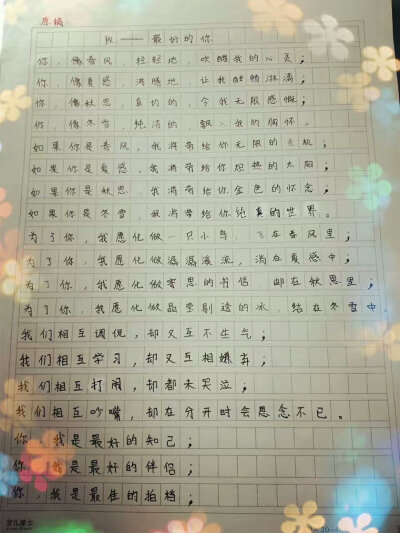 原稿:
致——最好的你
你，像春风，轻轻地，吹醒我的心灵；
你，像夏感，沸腾地，让我酣畅淋漓；
你，像秋思，真切的，令我无限感慨；
你，像冬雪，纯洁的，飘入我的胸怀。
如果你是春风，我将带给你无限的生机；
如果你是夏感，我将带给你炽热的太阳；
如果你是秋思，我将带给你金色的怀念；
如果你是冬雪，我将带给你纯真的世界。
为了你，我愿化做一只小鸟，飞在春风里；
为了你，我愿化做潺潺溪流，淌在夏感中；
为了你，我愿化做寄思的书信，邮在秋思里；
为了你，我愿化做晶莹剔透的冰，结在冬雪中。
我们相互调侃，却又互不生气；
我们相互学习，却又互相嫌弃；
我们相互打闹，却都未哭泣；
我们相互吵嘴，却在分开时会思念不已。
你，我是最好的知己；
你，我是最好的伴侣；
你，我是最佳的拍档；